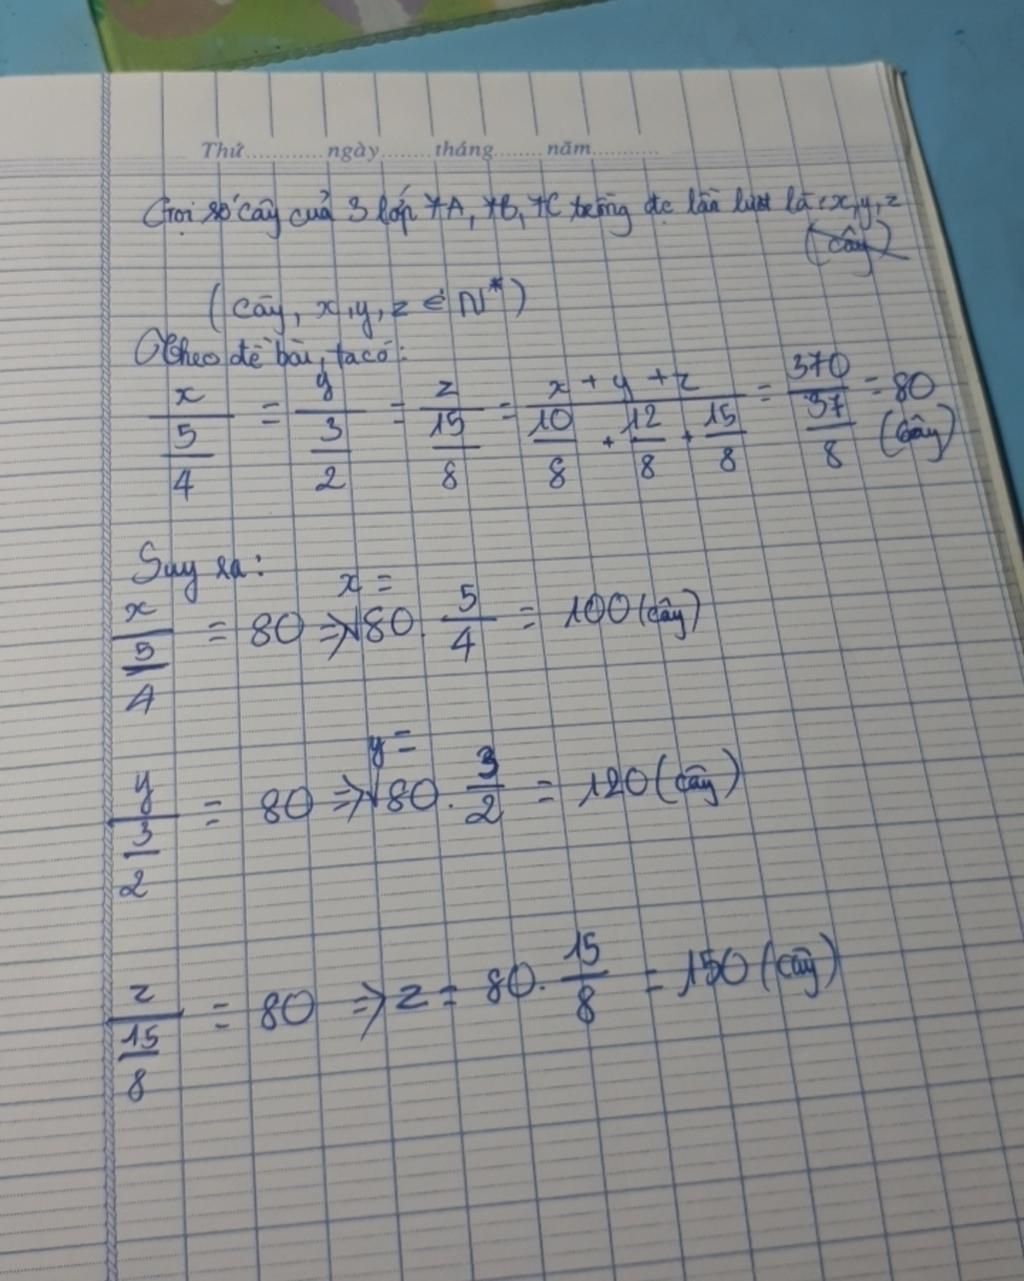 Thứ............ngày.......tháng.......năm...........
Gọi số cây của 3 lớp 7A, 7B, 7C trồng đc lần lượt là: x, y, z
(cây)
(cây, x, y, z ∈ N*)
Theo đề bài, ta có:
x/(5/4) = y/(3/2) = z/(15/8) = (x + y + z)/(10/8 + 12/8 + 15/8) = 370/(37/8) = 80 (cây)
Suy ra:
x/(5/4) = 80 => x = 80 . 5/4 = 100 (cây)
y/(3/2) = 80 => y = 80 . 3/2 = 120 (cây)
z/(15/8) = 80 => z = 80 . 15/8 = 150 (cây)